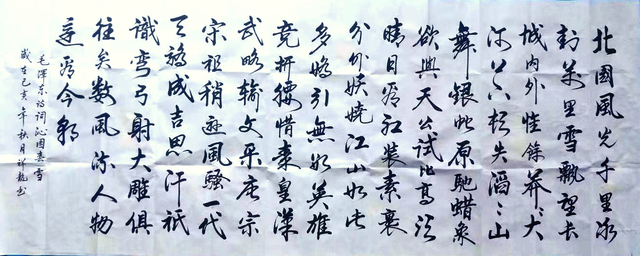 北國風光千里冰
封萬里雪飄望長
城内外惟餘莽々大
河上下頓失滔々山
舞銀蛇原馳蜡象
欲與天公試比高須
晴日看紅裝素裹
分外妖嬈江山如此
多嬌引無數英雄
競折腰惜秦皇漢
武略輸文采唐宗
宋祖稍遜風騷一代
天驕成吉思汗祇
識彎弓射大雕俱
往矣數風流人物
還看今朝
毛澤东詩詞沁园春雪
歲在己亥年秋月祥龍书